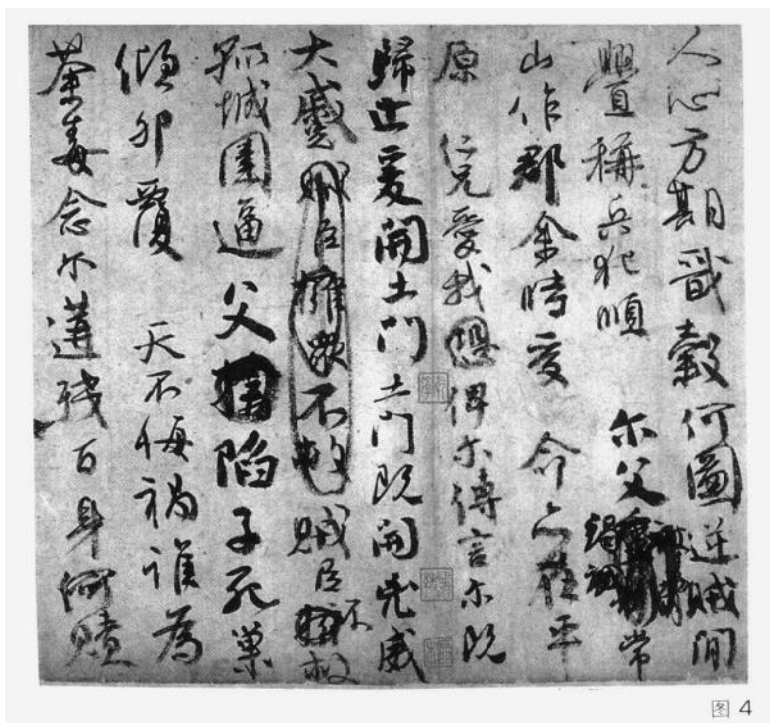 人心方期戩穀何圖逆賊間
釁稱兵犯順 尔父竭誠常
山作郡余時受 命亦在平
原 仁兄愛我恐俾尔傳言尔既
歸止爰開土門土門既開凶威
大蹙賊臣擁衆不救賊臣不救
孤城圍逼父陷子死巢
傾卵覆 天不悔禍誰為
荼毒念尔遘殘百身何贖
图 4